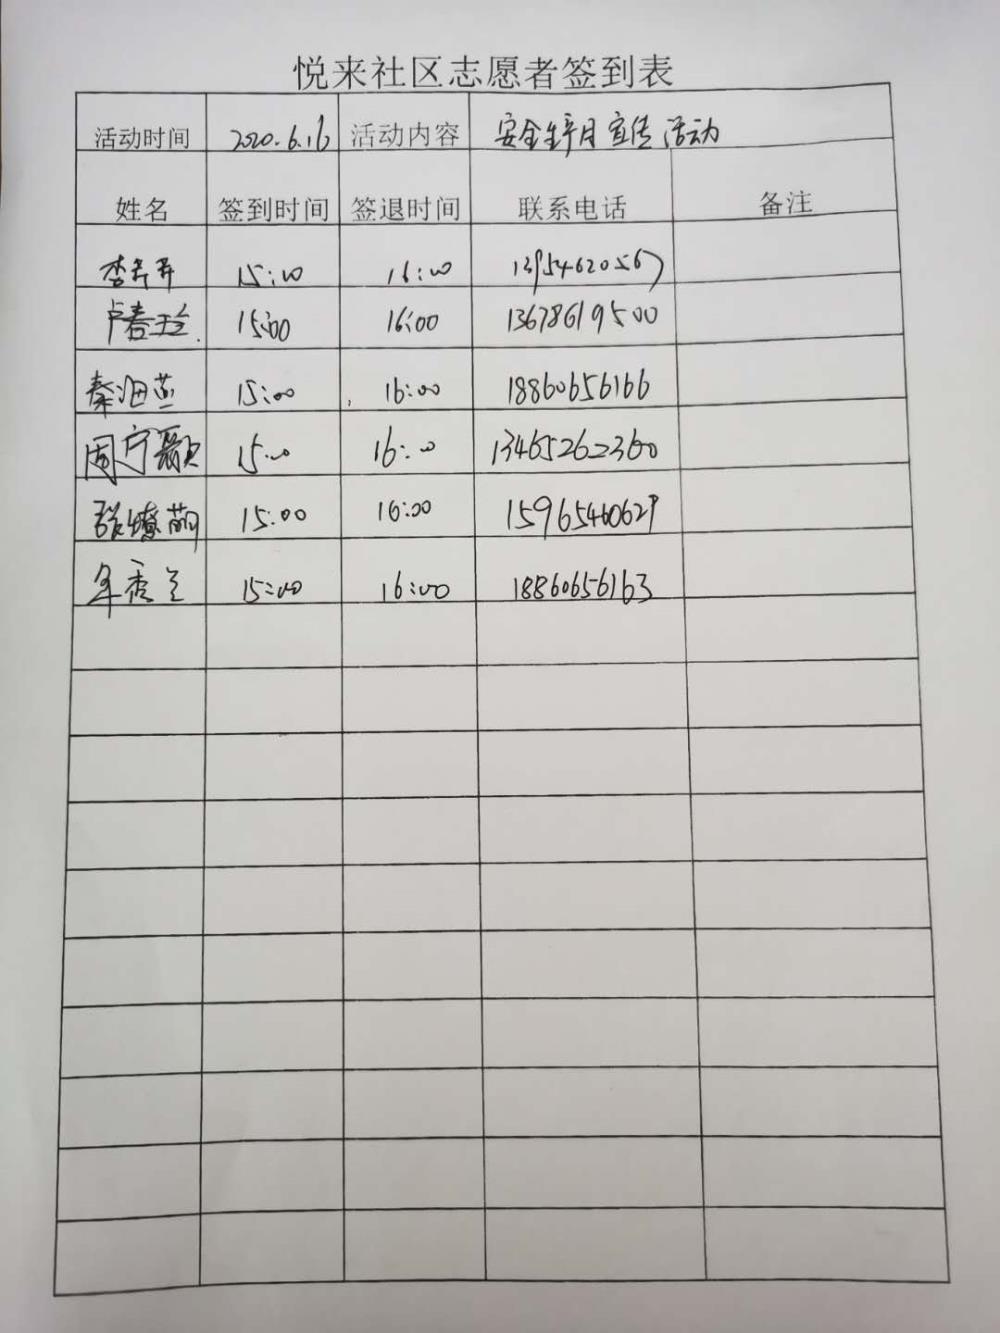 悦来社区志愿者签到表
活动时间 2020.6.16 活动内容 安全生产月宣传活动
姓名 签到时间 签退时间 联系电话 备注
李 15:00 16:00 13954620567
卢春玲 15:00 16:00 13678619500
秦海燕 15:00 16:00 18860656166
周宁 15:00 16:00 13465262360
张燎萌 15:00 16:00 15965460629
年秀兰 15:00 16:00 18860656163